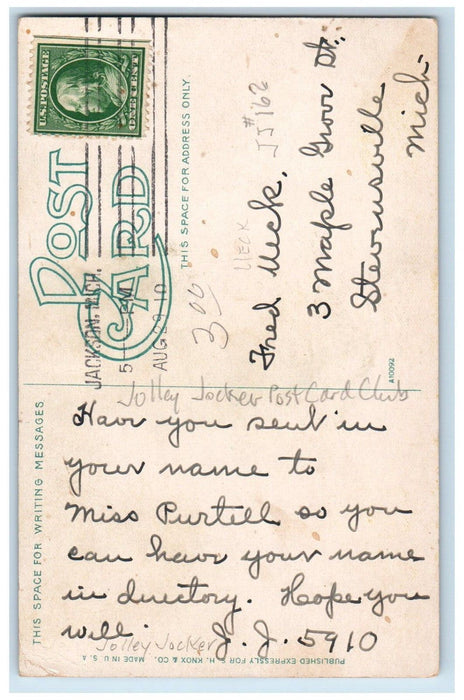 U.S. POSTAGE
ONE CENT
JACKSON, MICH.
5 - PM
AUG 29 10
POST CARD
THIS SPACE FOR ADDRESS ONLY.
JJ #162
Ueck
3 00
Fred Ueck,
3 Maple Grove St.
Stevensville
Mich-
A10092
THIS SPACE FOR WRITING MESSAGES
Jolley Jocker Post Card Club
Have you sent in
your name to
Miss Purtell so you
can have your name
in directory. Hope you
will. J. J. 5910
Jolley Jocker
PUBLISHED EXPRESSLY FOR S. H. KNOX & CO. MADE IN U. S. A